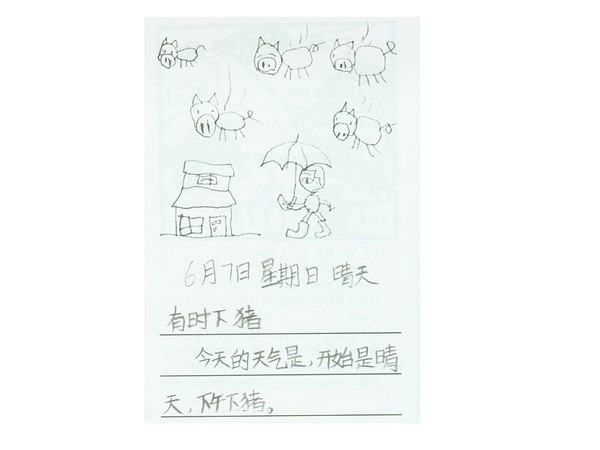 6月7日 星期日 晴天
有时下猪
今天的天气是，开始是晴
天，下午下猪。